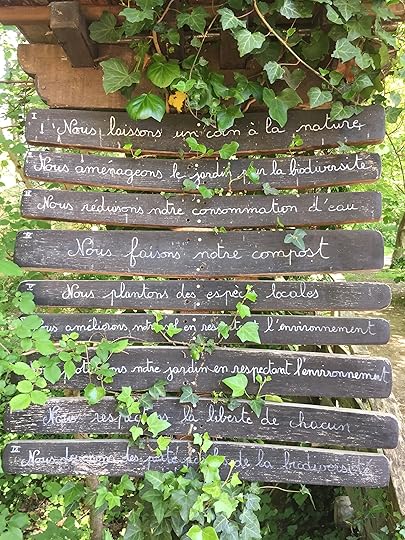 I Nous laissons un coin à la nature
Nous aménageons le jardin pour la biodiversité
Nous réduisons notre consommation d'eau
Nous faisons notre compost
Nous plantons des espèces locales
Nous améliorons notre sol en respectant l'environnement
notre jardin en respectant l'environnement
Nous respectons la liberté de chacun
IX Nous devenons des de la biodiversité